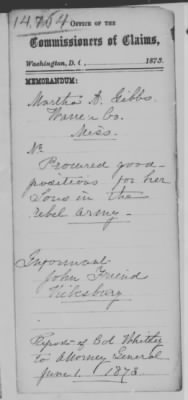 14,754
OFFICE OF THE
Commissioners of Claims,
Washington, D. C., 1873.
MEMORANDUM:
Martha A. Gibbs
Warren Co.
Miss.
No
Procured good
positions for her
Sons in the
rebel army.
Informant
John Friend
Vicksburg
Report of Col Whitley
to Attorney General
June 1 1873